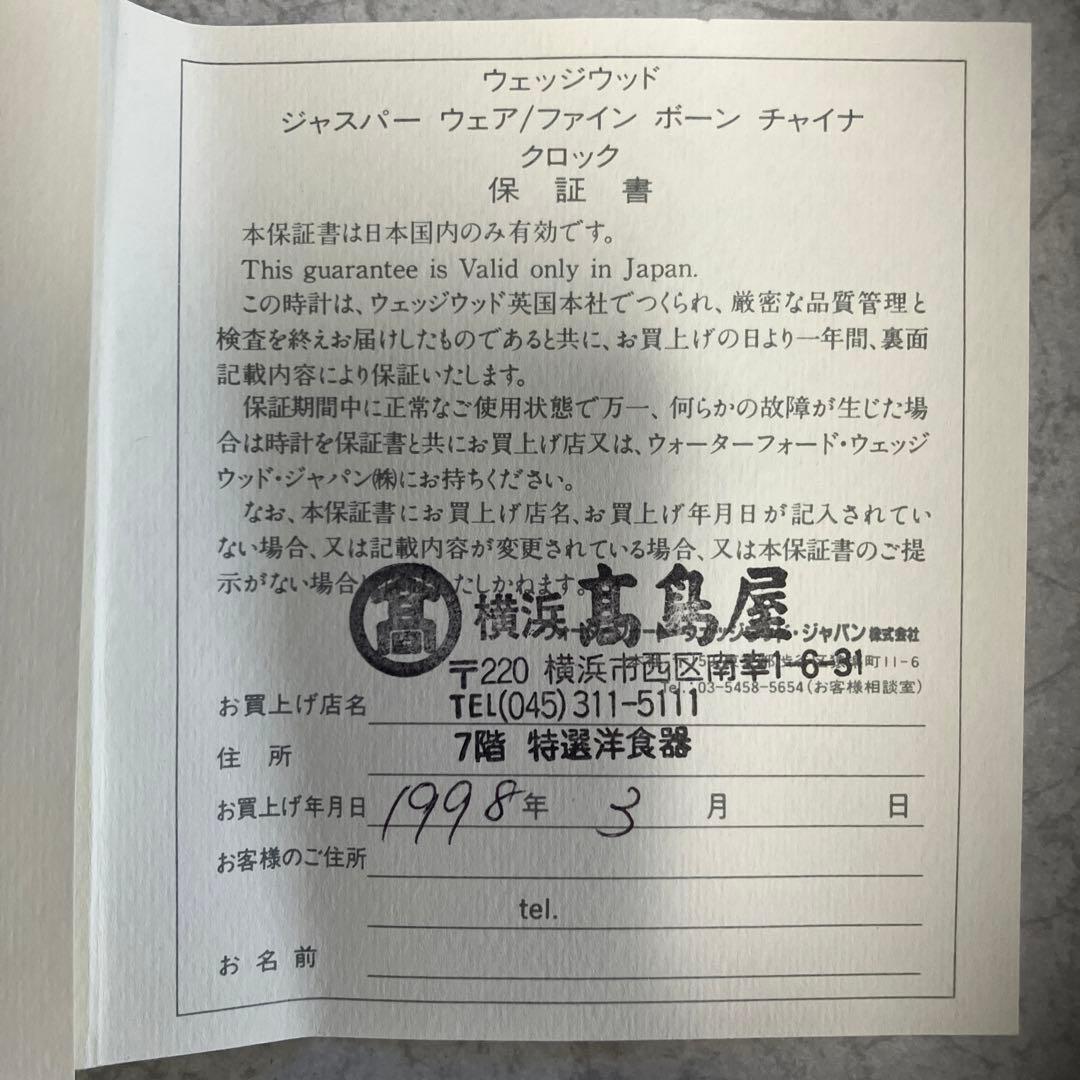 ウェッジウッド
ジャスパー ウェア/ファイン ボーン チャイナ
クロック
保 証 書
本保証書は日本国内のみ有効です。
This guarantee is Valid only in Japan.
この時計は、ウェッジウッド英国本社でつくられ、厳密な品質管理と
検査を終えお届けしたものであると共に、お買上げの日より一年間、裏面
記載内容により保証いたします。
保証期間中に正常なご使用状態で万一、何らかの故障が生じた場
合は時計を保証書と共にお買上げ店又は、ウォーターフォード・ウェッジ
ウッド・ジャパン㈱にお持ちください。
なお、本保証書にお買上げ店名、お買上げ年月日が記入されてい
ない場合、又は記載内容が変更されている場合、又は本保証書のご提
示がない場合 たしかねます。
髙 横浜 髙島屋
ジャパン株式会社
町11-6
〒220 横浜市西区南幸1-6-31
Tel.:03-5458-5654(お客様相談室)
お買上げ店名 TEL(045)311-5111
住 所 7階 特選洋食器
お買上げ年月日 1998年 3 月 日
お客様のご住所
tel.
お名前